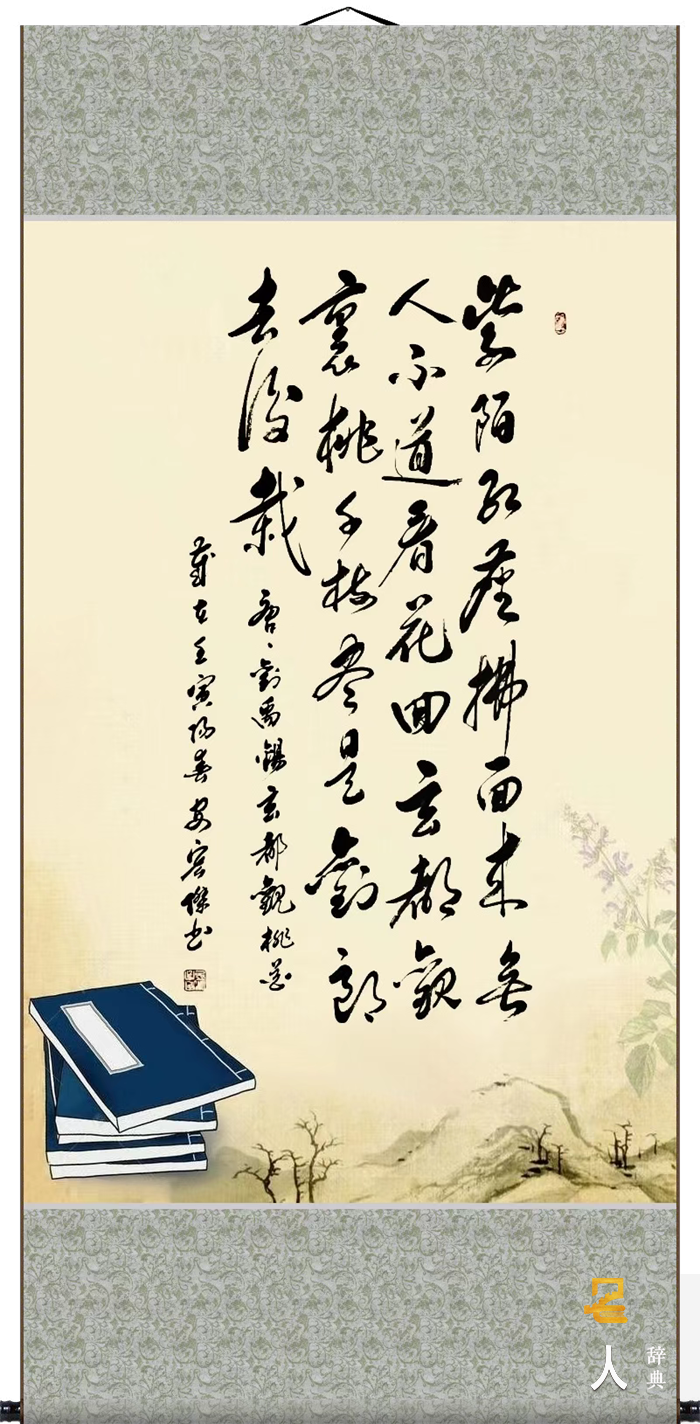 紫陌红尘拂面来无
人不道看花回玄都观
裏桃千树尽是刘郎
去後栽
唐、劉禹錫玄都觀桃花
歲在壬寅陽春安容傑书
名人
辞典